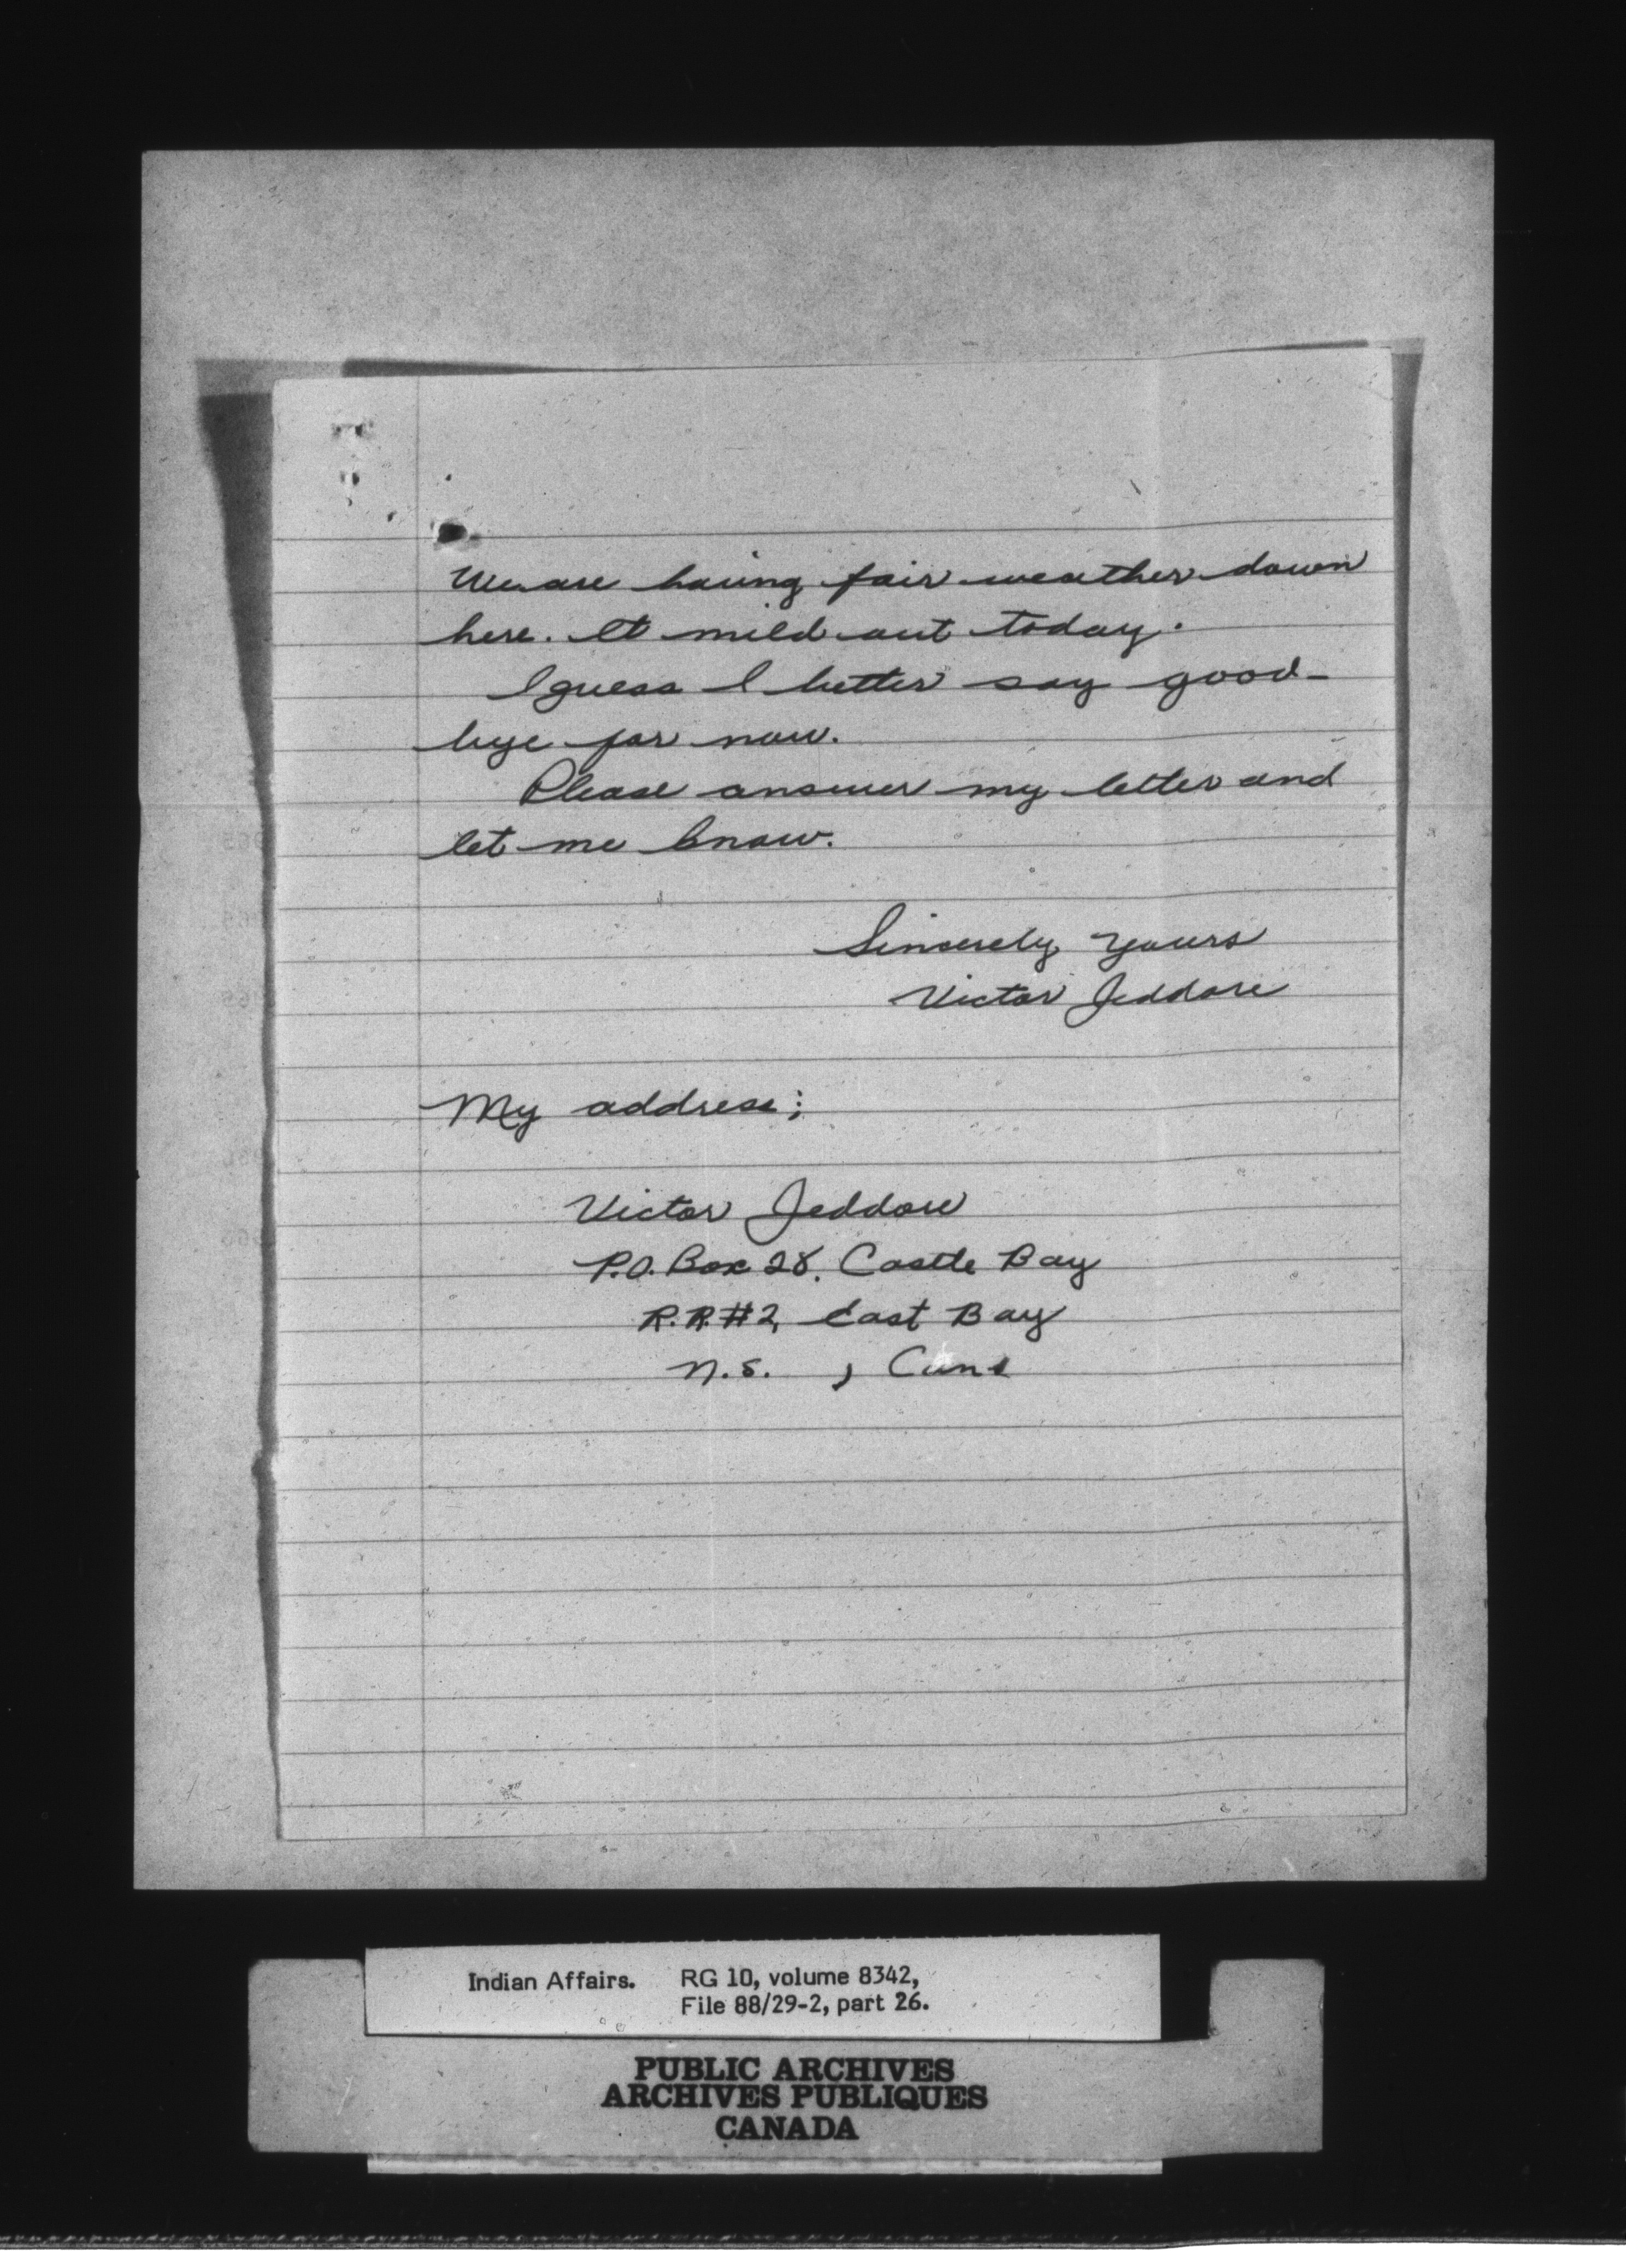 We are having fair weather down
here. It mild out today.
I guess I better say good-
bye for now.
Please answer my letter and
let me know.
Sincerely yours
Victor Jeddore
My address;
Victor Jeddore
P.O. Box 28, Castle Bay
R.R. #2, East Bay
N.S. , Cana
Indian Affairs. RG 10, volume 8342,
File 88/29-2, part 26.
PUBLIC ARCHIVES
ARCHIVES PUBLIQUES
CANADA